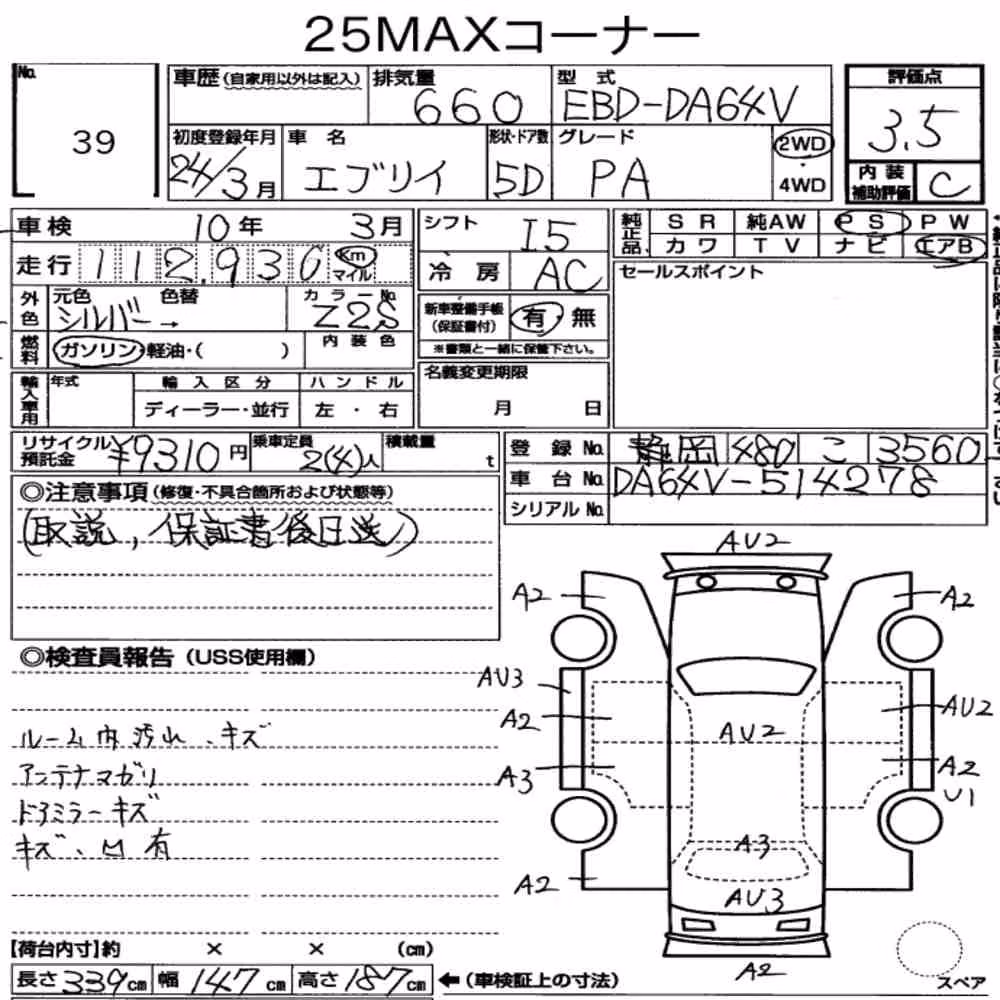 25MAXコーナー
No. 39
車歴(自家用以外は記入) 排気量 660 型式 EBD-DA64V 評価点 3.5
初度登録年月 24/3月 車名 エブリイ 形状・ドア数 5D グレード PA 2WD・4WD 内装補助評価 C
車検 10年 3月 シフト I5 純正品 SR 純AW PS PW
走行 112,936 Km マイル 冷房 AC カワ TV ナビ エアB
外色 元色 シルバー→ 色替 カラーNo. Z2S 新車整備手帳(保証書付) 有 無 セールスポイント
燃料 ガソリン・軽油・( ) 内装色 ※書類と一緒に保管下さい。
輸入車用 年式 輸入区分 ハンドル 名義変更期限
ディーラー・並行 左・右 月 日
リサイクル預託金 ¥9310円 乗車定員 2(4)人 積載量 t 登録No. 静岡 480 こ 3560
車台No. DA64V-514278
シリアルNo.
◎注意事項(修復・不具合箇所および状態等)
(取説,保証書後日送)
◎検査員報告(USS使用欄)
ルーム内汚れ、キズ
アンテナマガリ
ドアミラーキズ
キズ、凹有
AU2
A2 A2
AU3
A2 AU2 AU2
A3 A2
U1
A3
A2 AU3
A2
スペア
【荷台内寸】約 × × (cm)
長さ 339cm 幅 147cm 高さ 187cm ←(車検証上の寸法)